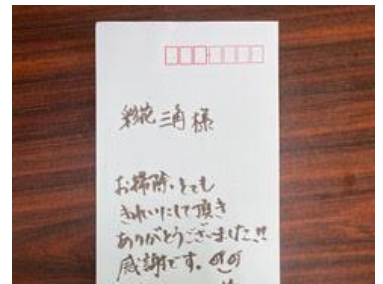 三角 様
お掃除、とても
きれいにして頂き
ありがとうございました!!
感謝です。